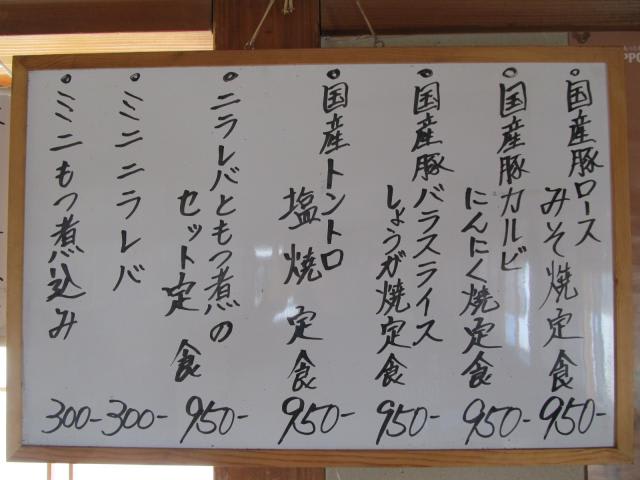 ・国産豚ロース
みそ焼定食
950-
・国産豚カルビ
にんにく焼定食
950-
・国産豚バラスライス
しょうが焼定食
950-
・国産トントロ
塩焼定食
950-
・ニラレバともつ煮の
セット定食
950-
・ミニニラレバ
300-
・ミニもつ煮込み
300-